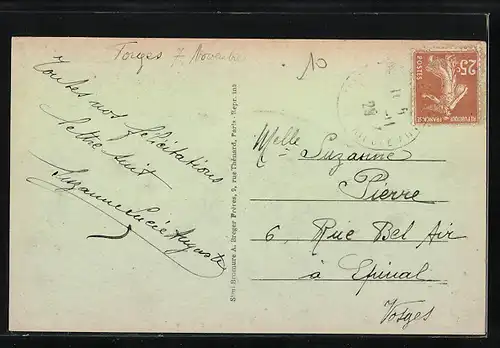 Forges 7 Novembre
10
Toutes nos félicitations
lettre suit
Suzanne Lucie Auguste
Simi-Bromure A. Breger Frères, 9, rue Thénard, Paris-Repr. int
25c
POSTES
REPUBLIQUE FRANÇAISE
Melle Suzanne
Pierre
6, Rue Bel Air
à Epinal
Vosges